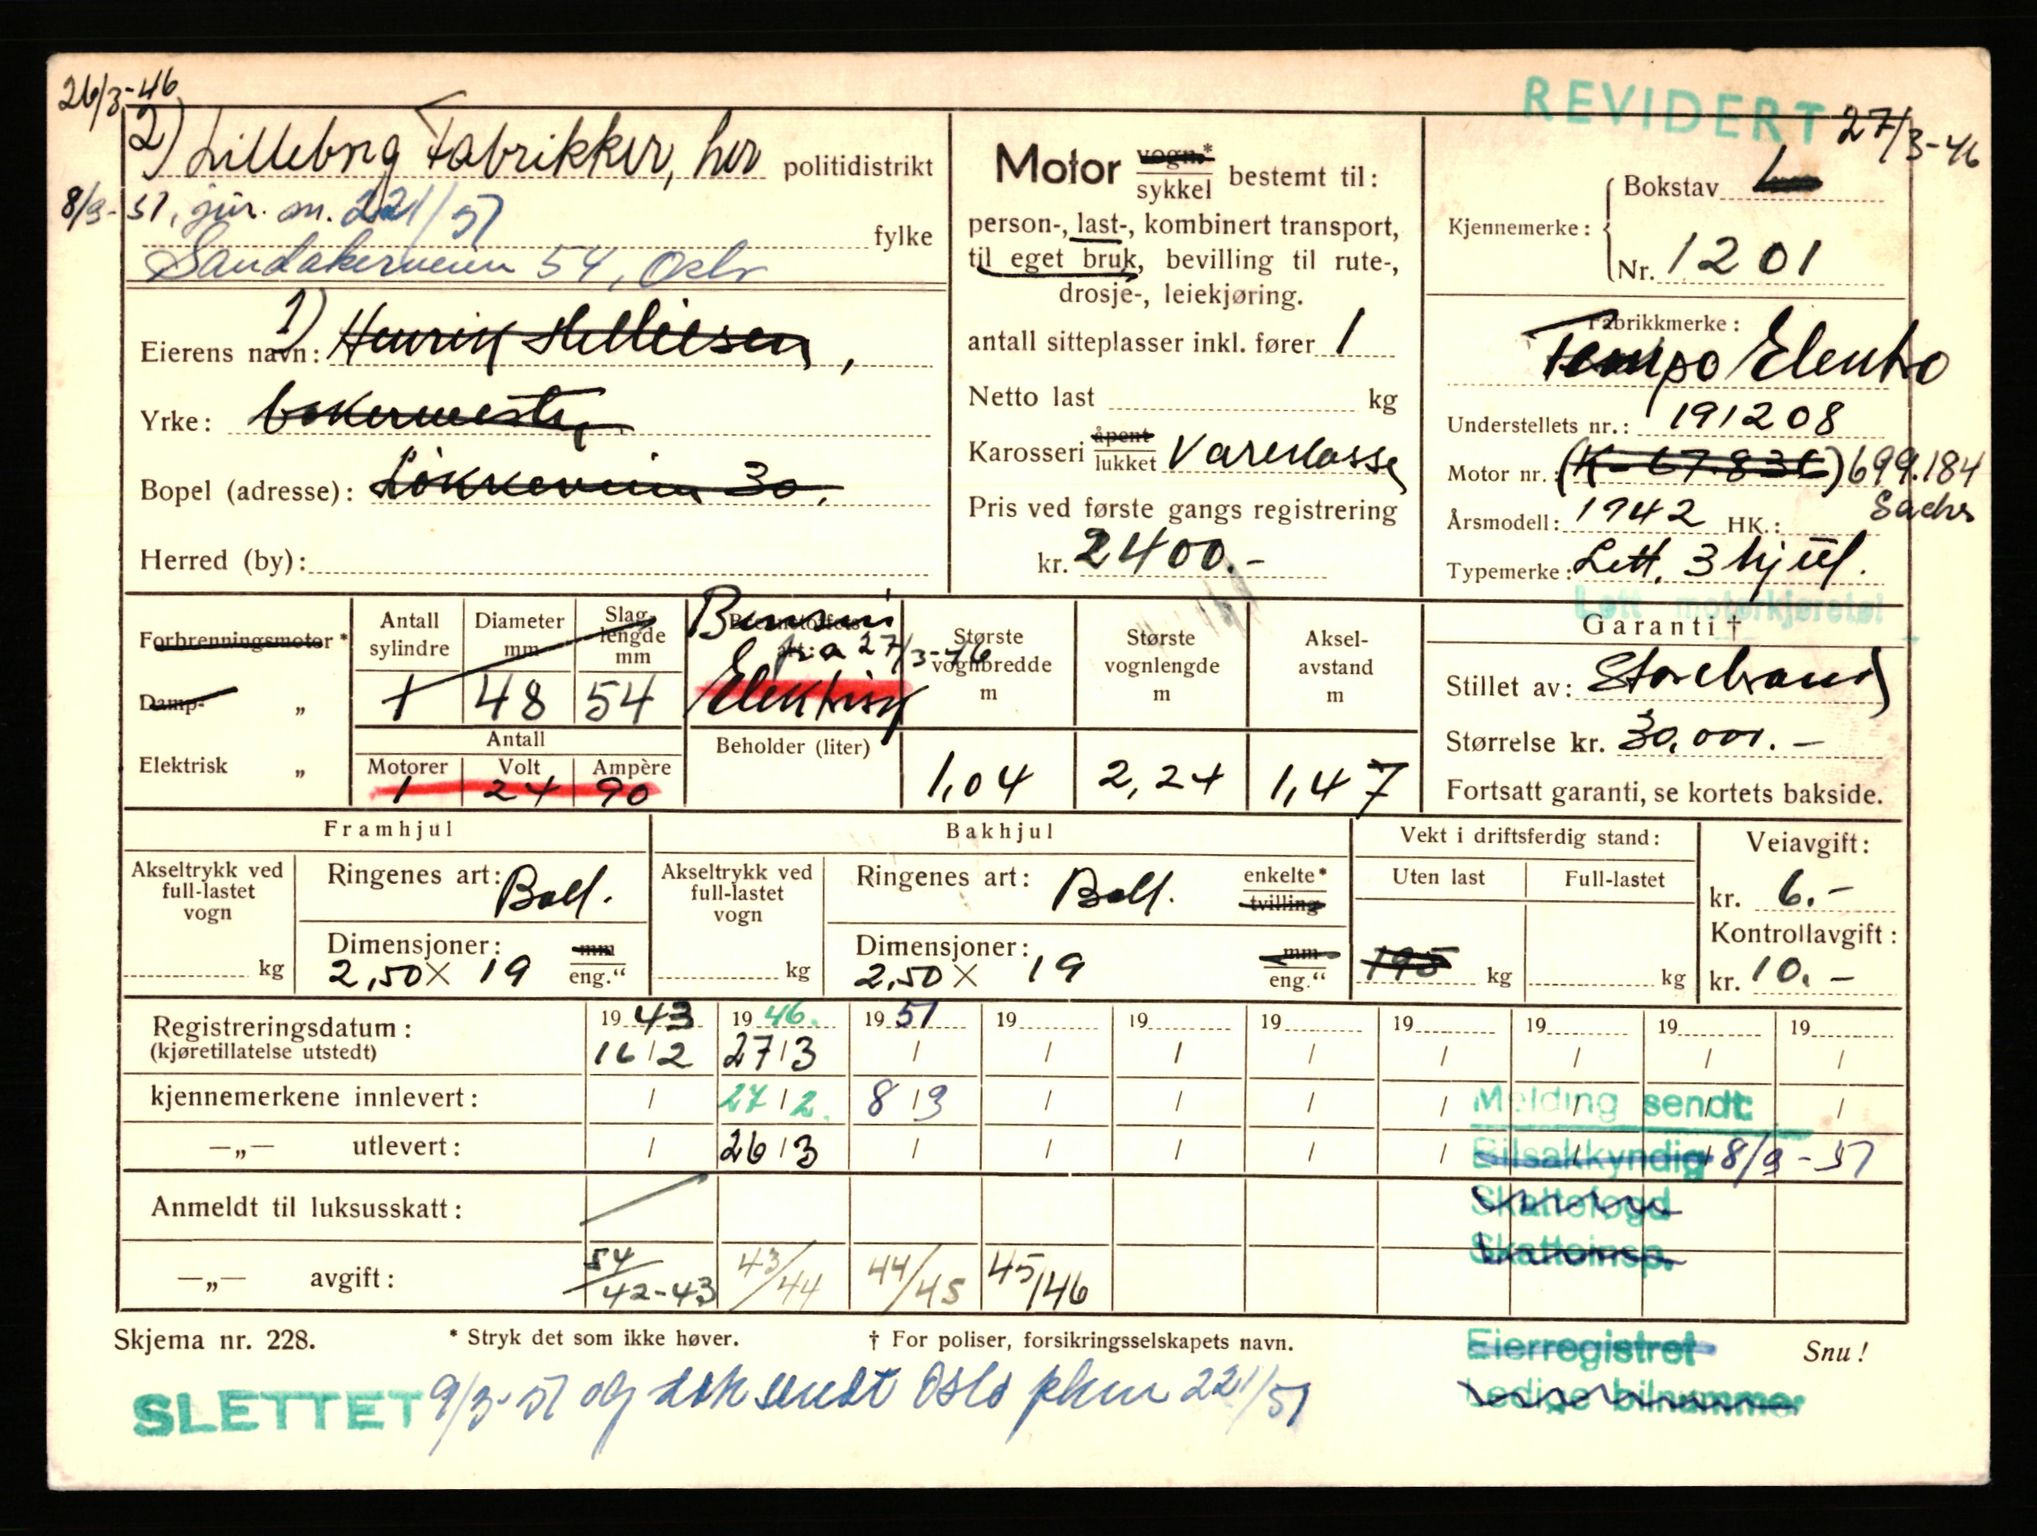 26/3-46
REVIDERT 27/3-46
2) Lilleborg Fabrikker, her politidistrikt
8/3-51, jnr. 221/51
fylke
Sandakerveien 54, Oslo
1)
Eierens navn: Henrik ,
Yrke: bakermester
Bopel (adresse): Løkkeveien 30.
Herred (by):
Motor vogn*
sykkel bestemt til:
person-, last-, kombinert transport,
til eget bruk, bevilling til rute-,
drosje-, leiekjøring.
antall sitteplasser inkl. fører 1
Netto last kg
Karosseri åpent
lukket Varekasse
Pris ved første gangs registrering
kr. 2400.-
Kjennemerke: Bokstav L
Nr. 1201
Fabrikkmerke:
Tempo Elektro
Understellets nr.: 191208
Motor nr.: (K-67.836) 699.184
Sachs
Årsmodell: 1942 HK.:
Typemerke: Lett. 3 hjul.
Lett motorkjøretøi
Forbrenningsmotor*
Damp- „
Elektrisk „
Antall sylindre 1
Diameter mm 48
Slaglengde mm 54
Antall
Motorer Volt Ampère
1 24 90
Bensin
Brennstoffets art:
fra 27/3-46
Elektrisk
Beholder (liter)
Største vognbredde m 1,04
Største vognlengde m 2,24
Akselavstand m 1,47
Garanti †
Stillet av: Storebrand
Størrelse kr. 30.000.-
Fortsatt garanti, se kortets bakside.
Framhjul
Akseltrykk ved full-lastet vogn
kg
Ringenes art: Ball.
Dimensjoner: mm
2,50 x 19 eng.“
Bakhjul
Akseltrykk ved full-lastet vogn
kg
Ringenes art: Ball. enkelte*
tvilling
Dimensjoner: mm
2,50 x 19 eng.“
Vekt i driftsferdig stand:
Uten last Full-lastet
195 kg kg
Veiavgift:
kr. 6.-
Kontrollavgift:
kr. 10.-
Registreringsdatum: 19 43 19 46. 19 51 19 19 19 19 19 19 19
(kjøretillatelse utstedt) 16/2 27/3 / / / / / / / /
kjennemerkene innlevert: / 27/2. 8/3 / / / / / / /
—„— utlevert: / 26/3 / / / / / / / /
Melding sendt:
Bilsakkyndig 8/3-51
Skattefogd
Skatteinsp.
Anmeldt til luksusskatt:
—„— avgift: 54/42-43 43/44 44/45 45/46
Skjema nr. 228. * Stryk det som ikke høver. † For poliser, forsikringsselskapets navn. Snu!
Eierregistret
Ledige bilnummer
SLETTET 9/3-51 og dok sendt Oslo 221/51